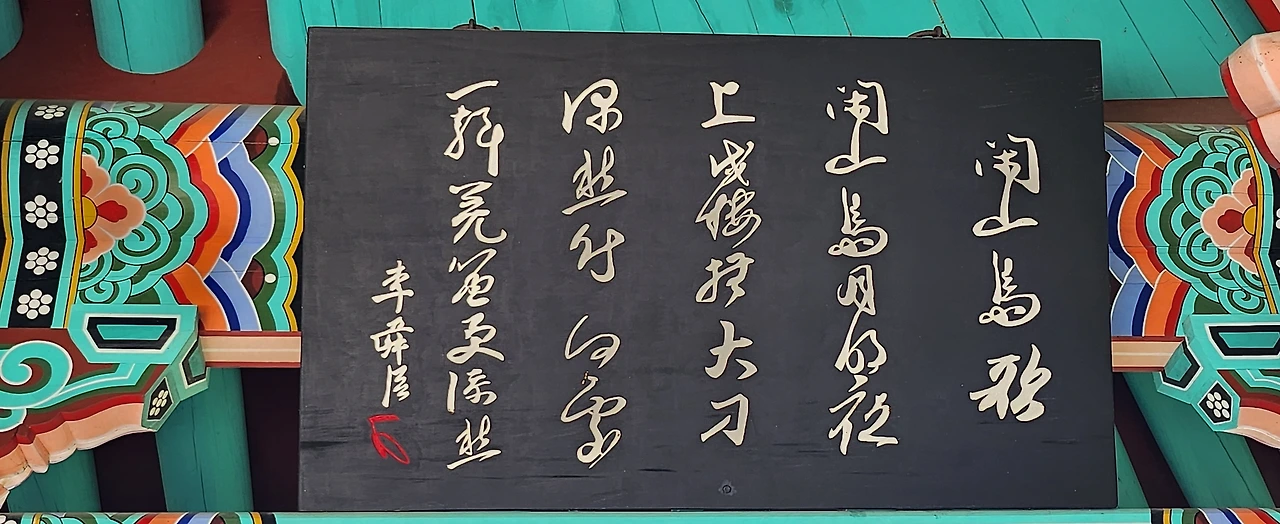 閑山島歌
閑山島月明夜
上戍樓撫大刀
深愁時何處
一聲羌笛更添愁
李舜臣